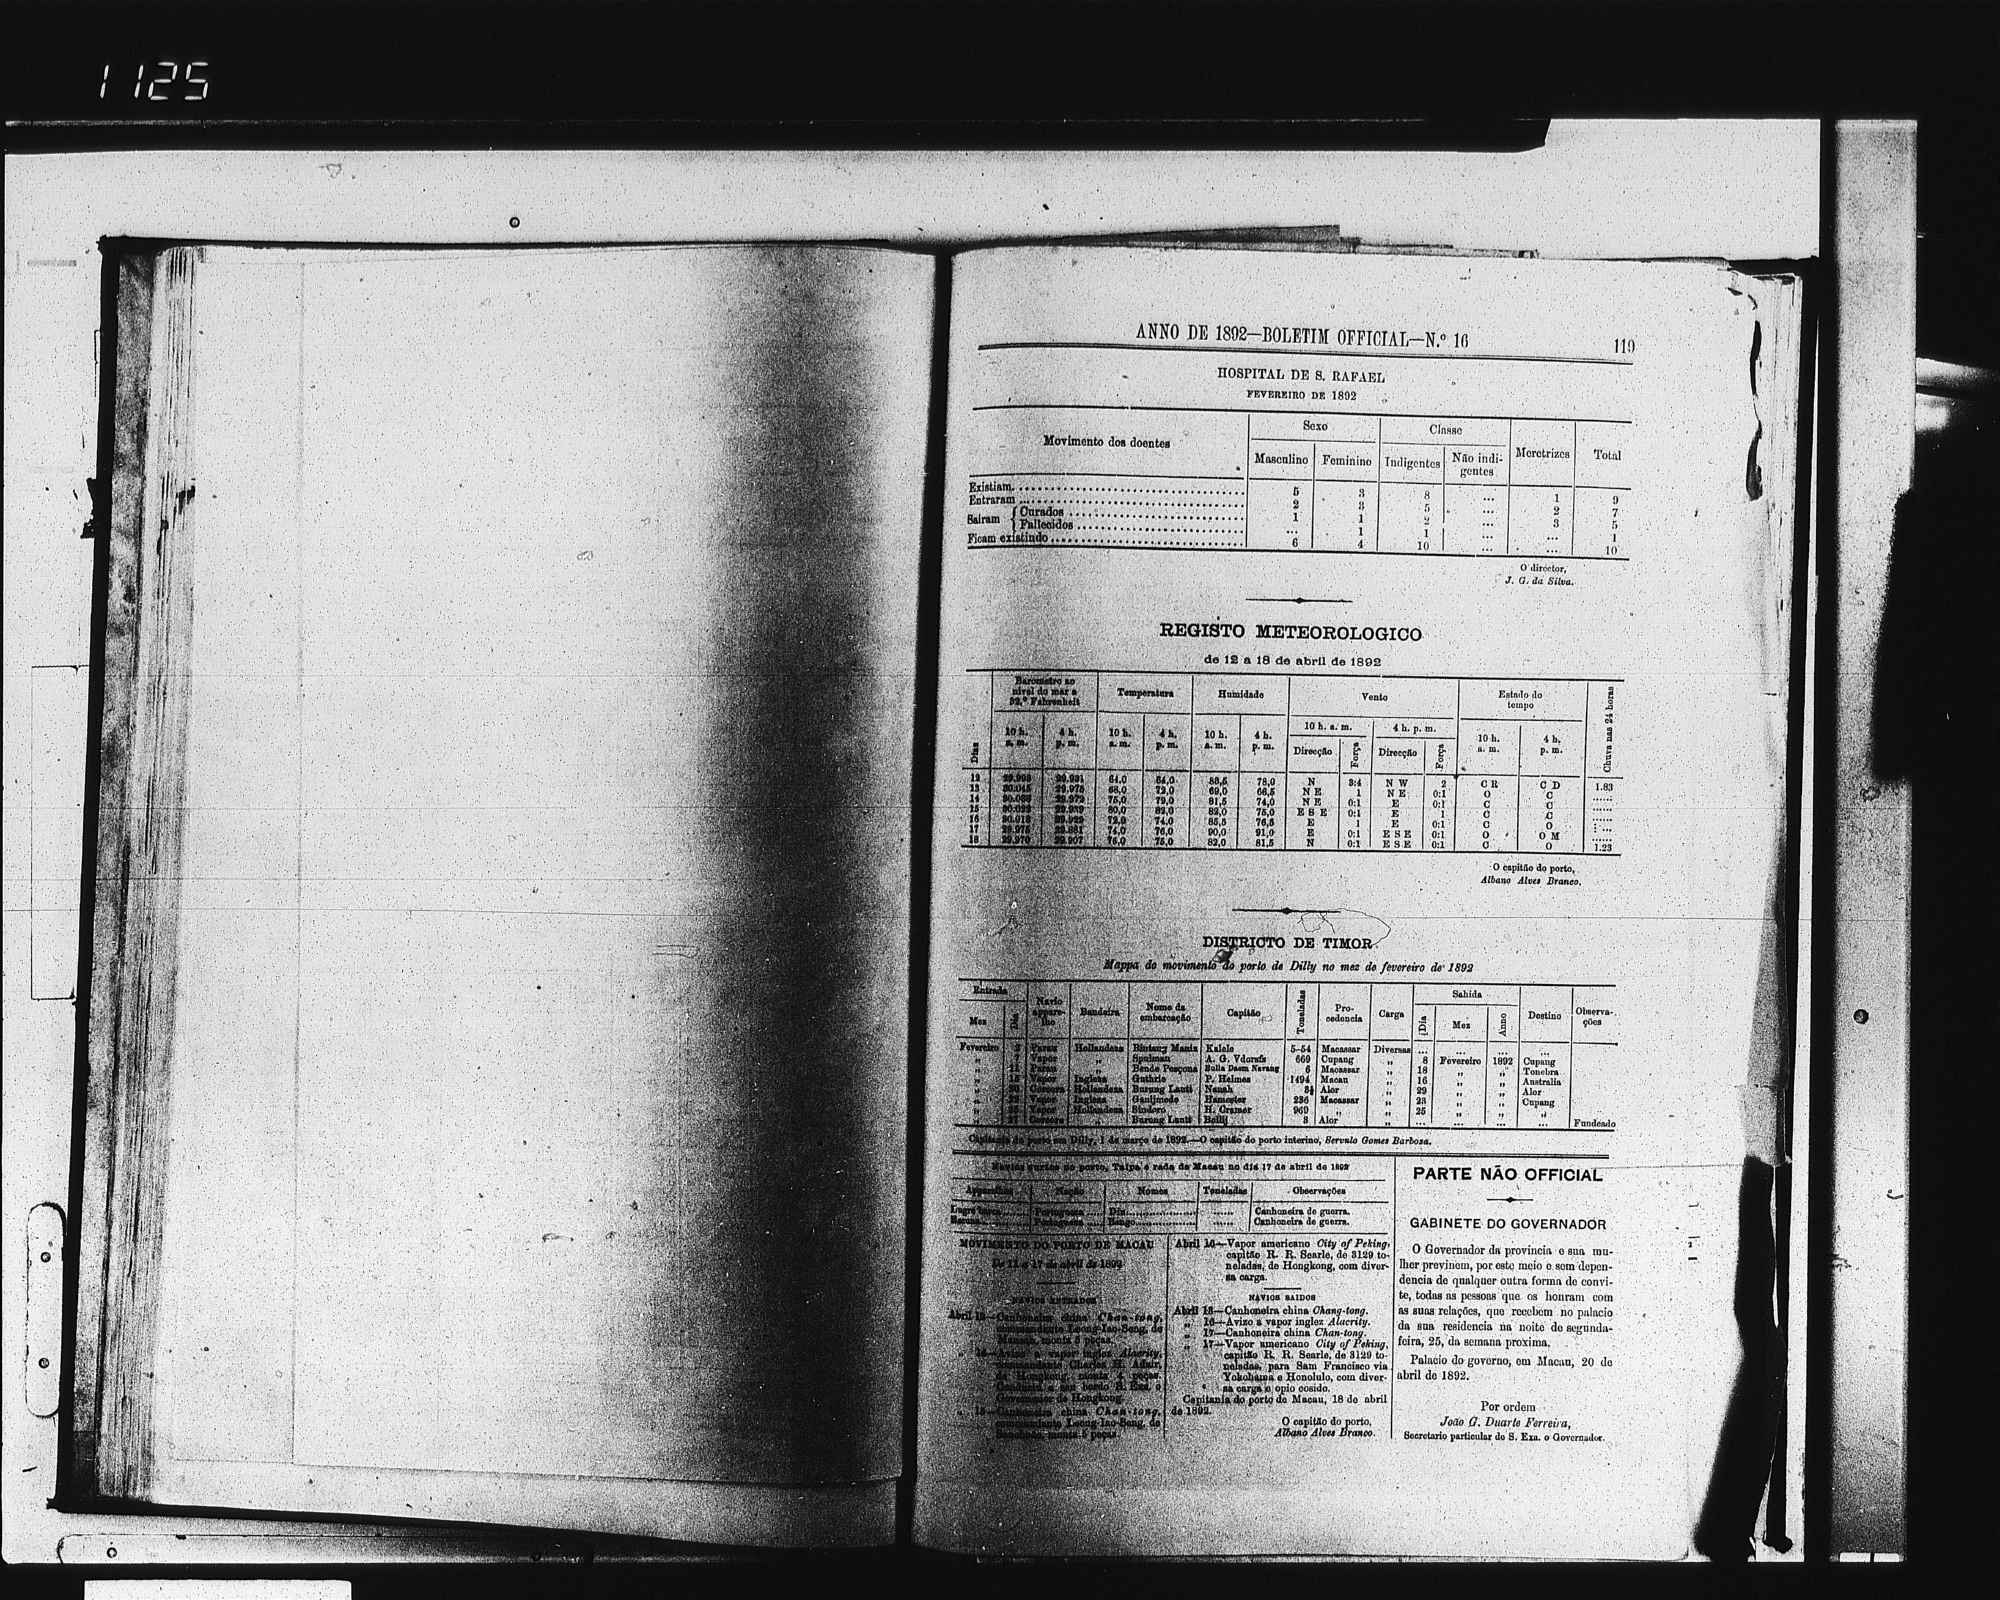 1125
ANNO DE 1892—BOLETIM OFFICIAL—N.º 16 119
HOSPITAL DE S. RAFAEL
FEVEREIRO DE 1892
Movimento dos doentes Sexo Classe Meretrizes Total
Masculino Feminino Indigentes Não indi-
gentes
Existiam 5 3 8 ... 1 9
Entraram 2 3 5 ... 2 7
Sairam { Curados 1 1 2 ... 3 5
Fallecidos ... 1 1 ... ... 1
Ficam existindo 6 4 10 ... ... 10
O director,
J. G. da Silva.
REGISTO METEOROLOGICO
de 12 a 18 de abril de 1892
Dias Barometro ao
nivel do mar a
32.º Fahrenheit Temperatura Humidade Vento Estado do
tempo Chuva nas 24 horas
10 h. a. m. 4 h. p. m.
10 h.
a. m. 4 h.
p. m. 10 h.
a. m. 4 h.
p. m. 10 h.
a. m. 4 h.
p. m. Direcção Força Direcção Força 10 h.
a. m. 4 h.
p. m.
12 64,0 64,0 78,0 N 3:4 N W 2 C R C D 1.83
13 68,0 72,0 69,0 66,5 N E 1 N E 0:1 O C ......
14 75,0 79,0 81,5 74,0 N E 0:1 E 0:1 C C ......
15 80,0 82,0 82,0 75,0 E S E 0:1 E 1 C C ......
16 72,0 74,0 85,5 76,5 E 1 E 0:1 C O
17 74,0 76,0 90,0 91,0 E 0:1 E S E 0:1 O O M ......
18 29.970 29.907 76,0 75,0 82,0 81,5 N 0:1 E S E 0:1 C O 1.23
O capitão do porto,
Albano Alves Branco.
DISTRICTO DE TIMOR
Mappa do movimento do porto de Dilly no mez de fevereiro de 1892
Entrada Navio
appare-
lho Bandeira Nome da
embarcação Capitão Toneladas Pro-
cedencia Carga Sahida Destino Observa-
ções
Mez Dia Dia Mez Anno
Fevereiro Parau Hollandeza Bintang Manis Kalele 5-54 Macassar Diversas ... ... ... ...
„ 7 Vapor „ Spelman A. G. 669 Cupang „ 8 Fevereiro 1892 Cupang
„ 11 Parau „ Bende 6 Macassar „ 18 „ „ Tonebra
„ Vapor Ingleza Guthrie P. Helmes 1494 Macau „ 16 „ „ Australia
„ Hollandeza Burung Lauti Nanah Alor „ 29 „ „ Alor
„ Vapor Ingleza Ganijmede Hamester 236 Macassar „ 23 „ „ Cupang
„ Vapor Hollandeza Bindoro H. Cramer 969 „ „ 25 „ „ „
„ 27 „ Burung Lauti 3 Alor „ ... ... ... ... Fundeado
Capitania do porto em Dilly, 1 de março de 1892.—O capitão do porto interino, Servulo Gomes Barbosa.
Navios surtos no porto, Taipa e rada de Macau no dia 17 de abril de 1892
Apparelhos Nação Nomes Toneladas Observações
Portugueza Diu ...... Canhoneira de guerra.
Portugueza Bengo ...... Canhoneira de guerra.
MOVIMENTO DO PORTO DE MACAU
De 11 a 17 de abril de 1892
NAVIOS ENTRADOS
Abril 12—Canhoneira china Chan-tong,
commandante Leong-Iao-Seng, de
monta 5 peças.
„ 16—Avizo a vapor inglez Alacrity,
commandante Charles H. Adair,
de Hongkong, monta 4 peças.
Governador de Hongkong.
china Chan-tong,
commandante Leong-Iao-Seng, de
monta 5 peças.
Abril 16—Vapor americano City of Peking,
capitão R. R. Searle, de 3129 to-
neladas, de Hongkong, com diver-
sa carga.
NAVIOS SAIDOS
Abril 13—Canhoneira china Chang-tong.
„ 16—Avizo a vapor inglez Alacrity.
„ 17—Canhoneira china Chan-tong.
„ 17—Vapor americano City of Peking,
capitão R. R. Searle, de 3129 to-
neladas, para Sam Francisco via
Yokohama e Honolulo, com diver-
sa carga e opio cosido.
Capitania do porto de Macau, 18 de abril
de 1892.
O capitão do porto,
Albano Alves Branco.
PARTE NÃO OFFICIAL
GABINETE DO GOVERNADOR
O Governador da provincia e sua mu-
lher previnem, por este meio e sem depen-
dencia de qualquer outra forma de convi-
te, todas as pessoas que os honram com
as suas relações, que recebem no palacio
da sua residencia na noite de segunda-
feira, 25, da semana proxima.
Palacio do governo, em Macau, 20 de
abril de 1892.
Por ordem
João G. Duarte Ferreira,
Secretario particular de S. Exa. o Governador.